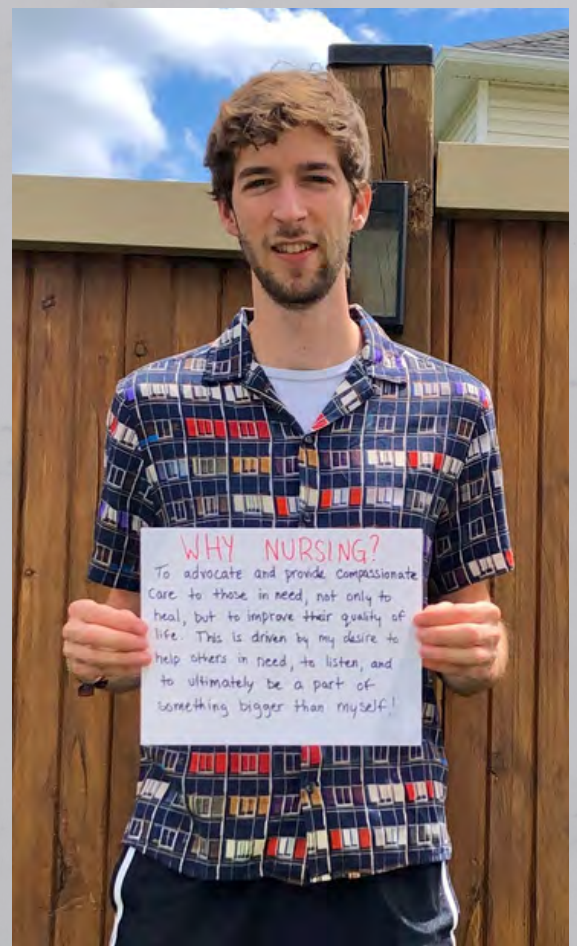 WHY NURSING?
To advocate and provide compassionate
care to those in need, not only to
heal, but to improve their quality of
life. This is driven by my desire to
help others in need, to listen, and
to ultimately be a part of
something bigger than myself!